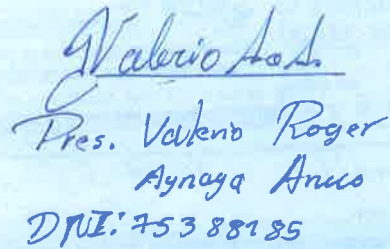 Valerio A.A.
Pres. Valerio Roger
Aynaya Anco
DNI: 75388185